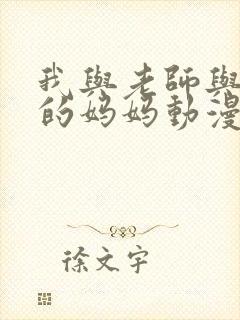 我與老師與
的媽媽動漫
徐文宇